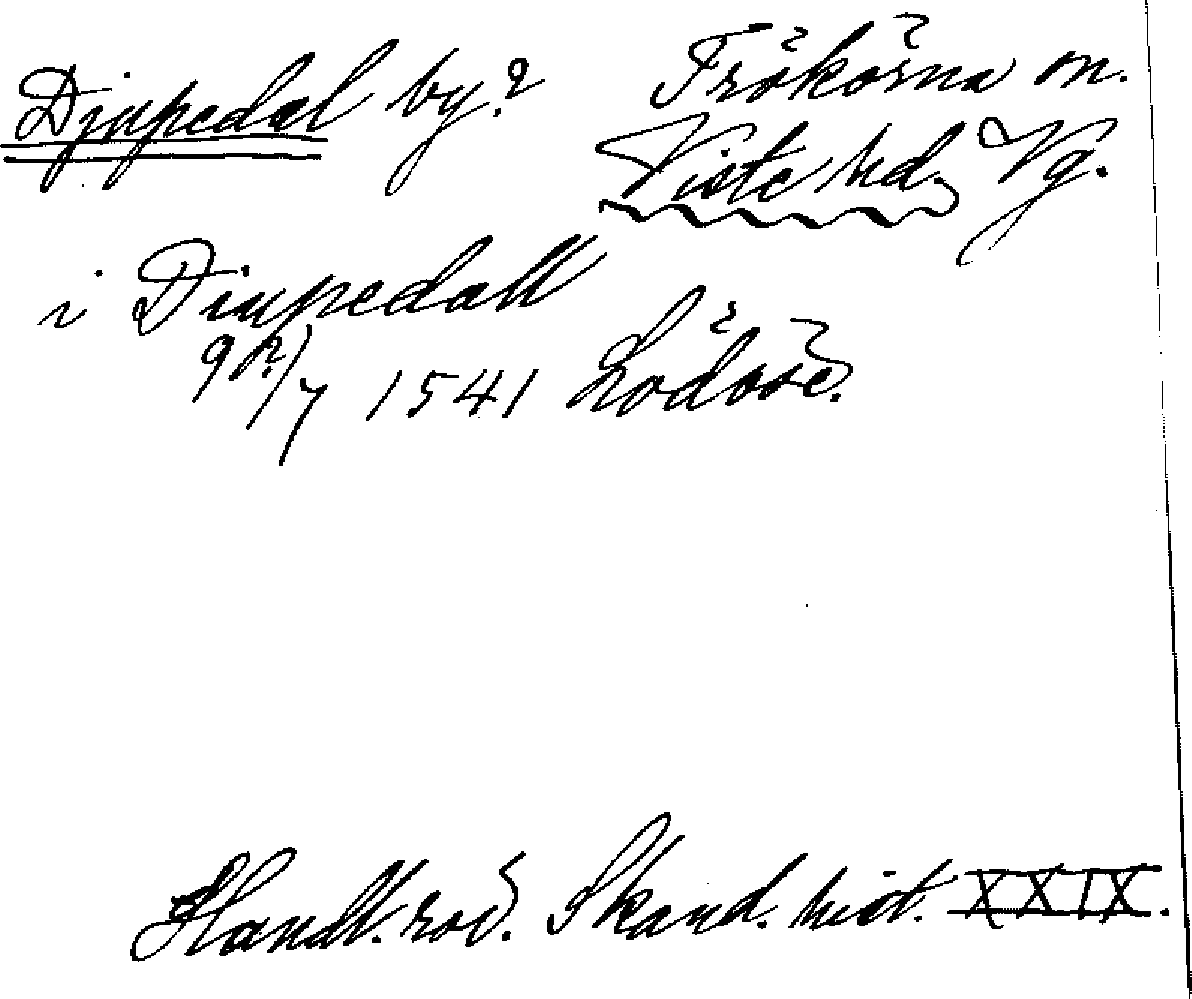 Djupedal by? Trökörna sn.
Viste hd. Vg.
i Diupedall
9(?)/7 1541 Lödöse.
Handl. rör. Skand. hist. XXIX.